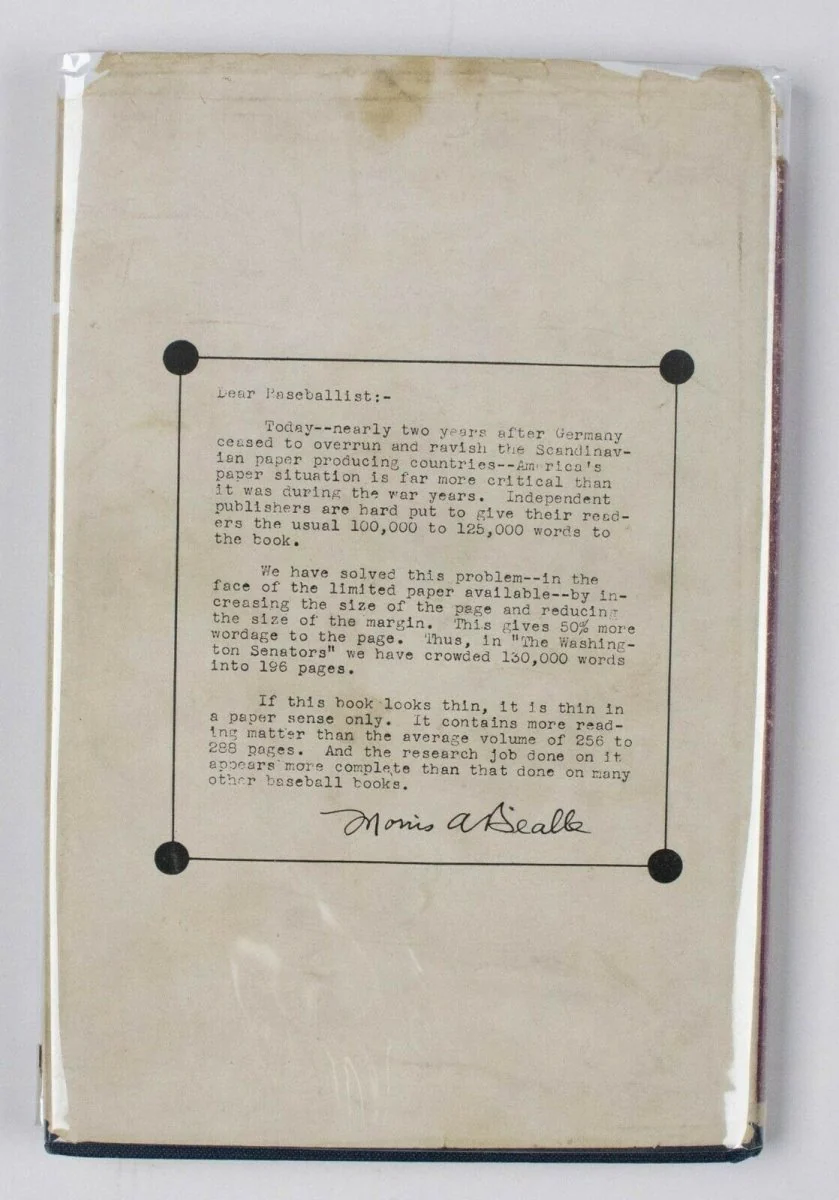 Dear Baseballist:-
Today--nearly two years after Germany
ceased to overrun and ravish the Scandinav-
ian paper producing countries--America's
paper situation is far more critical than
it was during the war years. Independent
publishers are hard put to give their read-
ers the usual 100,000 to 125,000 words to
the book.
We have solved this problem--in the
face of the limited paper available--by in-
creasing the size of the page and reducing
the size of the margin. This gives 50% more
wordage to the page. Thus, in "The Washing-
ton Senators" we have crowded 130,000 words
into 196 pages.
If this book looks thin, it is thin in
a paper sense only. It contains more read-
ing matter than the average volume of 256 to
288 pages. And the research job done on it
appears more complete than that done on many
other baseball books.
Morris A Bealle